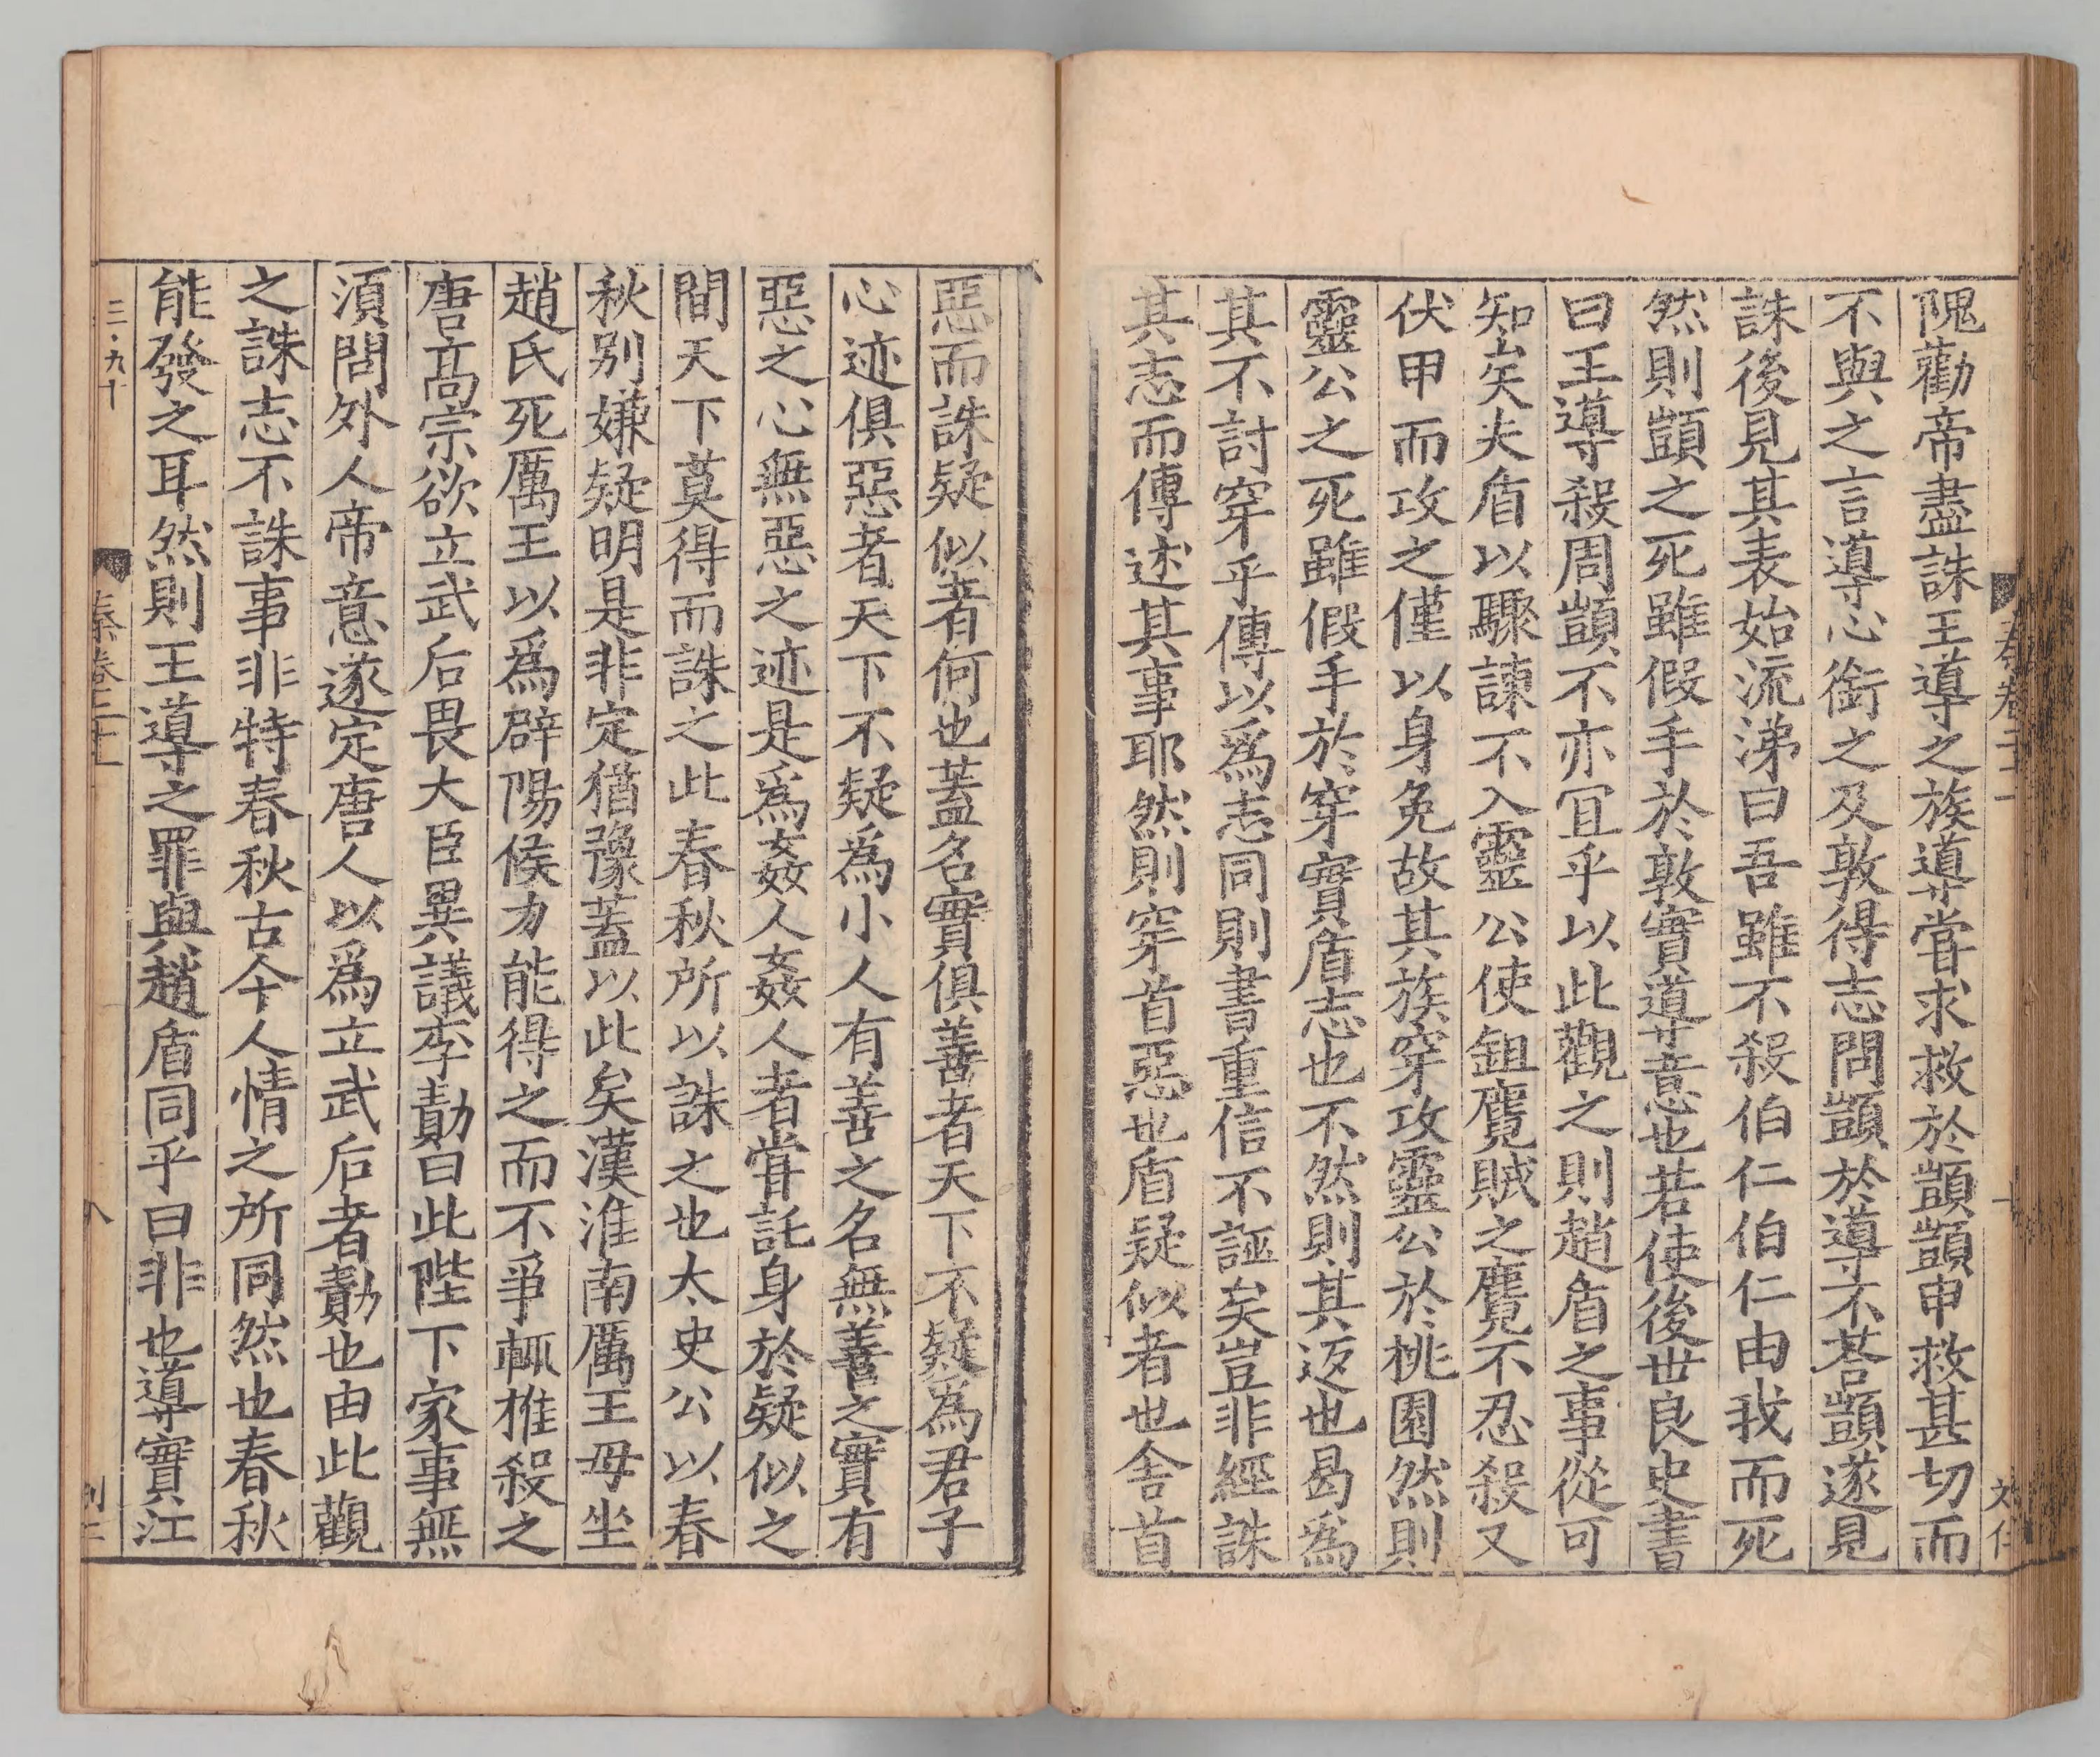 隗勸帝盡誅王導之族導甞求救於顗顗申救甚切而
不與之言導心銜之及敦得志問顗於導不荅顗遂見
誅後見其表始流涕曰吾雖不殺伯仁伯仁由我而死
然則顗之死雖假手於敦實導意也若使後世良史書
曰王導殺周顗不亦冝乎以此觀之則趙盾之事從可
知矣夫盾以驟諫不入靈公使鉏麑賊之麑不忍殺又
伏甲而攻之僅以身免故其族穿攻靈公於桃園然則
靈公之死雖假手於穿實盾志也不然則其返也曷爲
其不討穿乎傳以爲志同則書重信不誣矣豈非經誅
其志而傳述其事耶然則穿首惡也盾疑似者也舎首
惡而誅疑似者何也蓋名實俱善者天下不疑為君子
心迹俱惡者天下不疑爲小人有善之名無善之實有
惡之心無惡之迹是爲姦人姦人者甞託身於疑似之
間天下莫得而誅之此春秋所以誅之也太史公以春
秋别嫌疑明是非定猶豫蓋以此矣漢淮南厲王母坐
趙氏死厲王以爲辟陽侯力能得之而不爭輒推殺之
唐髙宗欲立武后畏大臣異議李勣曰此陛下家事無
湏問外人帝意遂定唐人以爲立武后者勣也由此觀
之誅志不誅事非特春秋古今人情之所同然也春秋
能發之耳然則王導之罪與趙盾同乎曰非也導實江
三·九十
秦卷二十
八